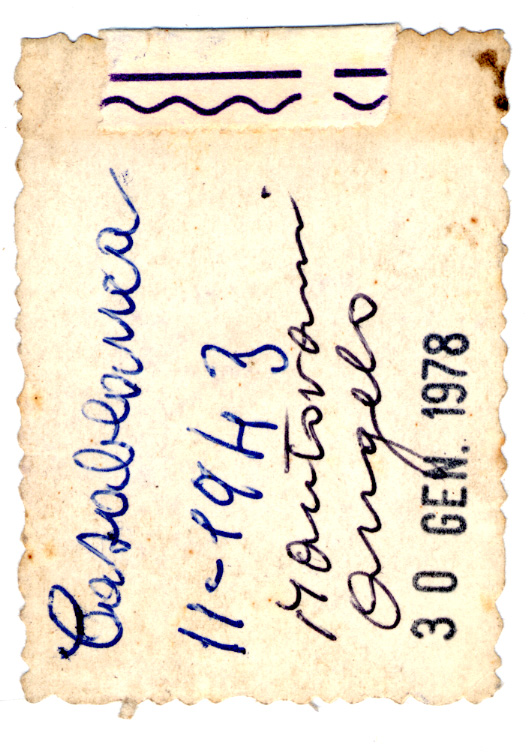 Casablanca
11-1943
Mantovani
Angelo
30 GEN. 1978